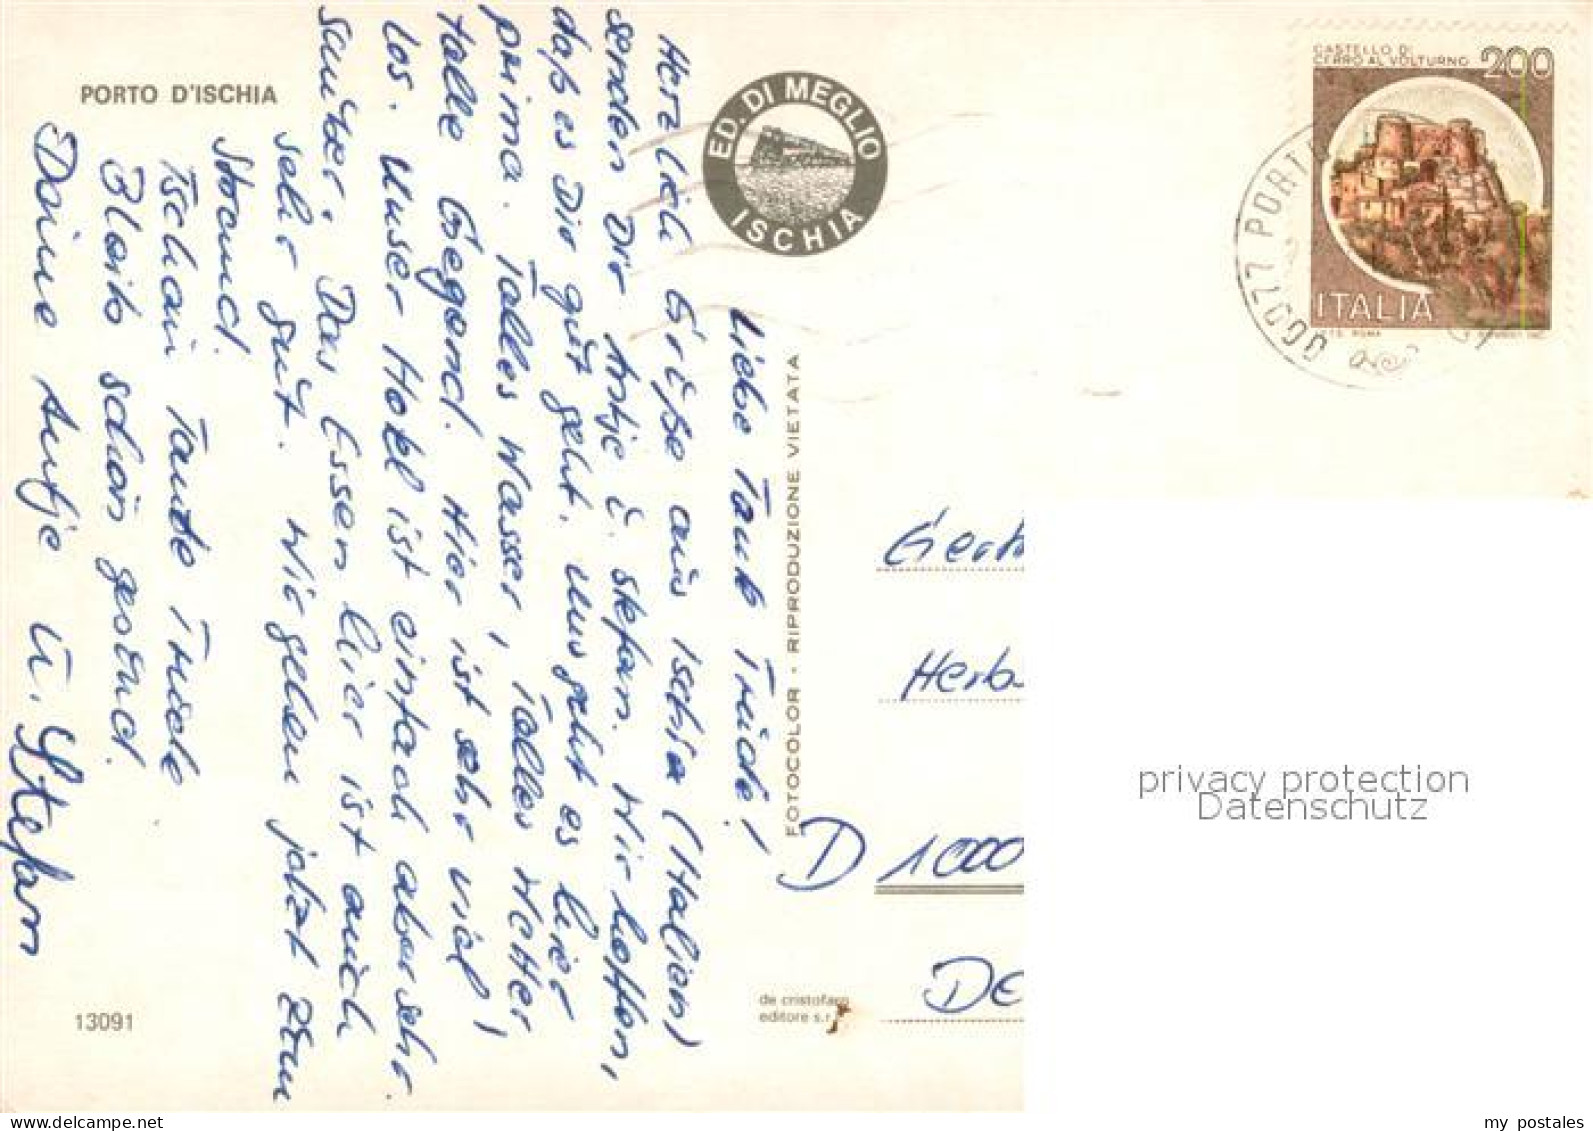 PORTO D'ISCHIA
ED. DI MEGLIO
ISCHIA
CASTELLO DI
CERRO AL VOLTURNO
200
ITALIA
I.P.S. ROMA
80077 PORTO
Liebe Tante Trude!
Herzliche Grüße aus Ischia (Italien)
senden Dir Antje u. Stefan. Wir hoffen,
daß es Dir gut geht. Uns geht es hier
prima. Tolles Wasser, Tolles Wetter,
tolle Gegend. Hier ist sehr viel
los. Unser Hotel ist einfach aber sehr
sauber. Das Essen hier ist auch
sehr gut. Wir gehen jetzt zum
Strand.
Tschau Tante Trude
Bleib schön gesund.
Deine Antje u. Stefan
FOTOCOLOR - RIPRODUZIONE VIETATA
Gert
Herb
D 1000
DE
13091
de cristofaro
editore s.r.
privacy protection
Datenschutz
my postales